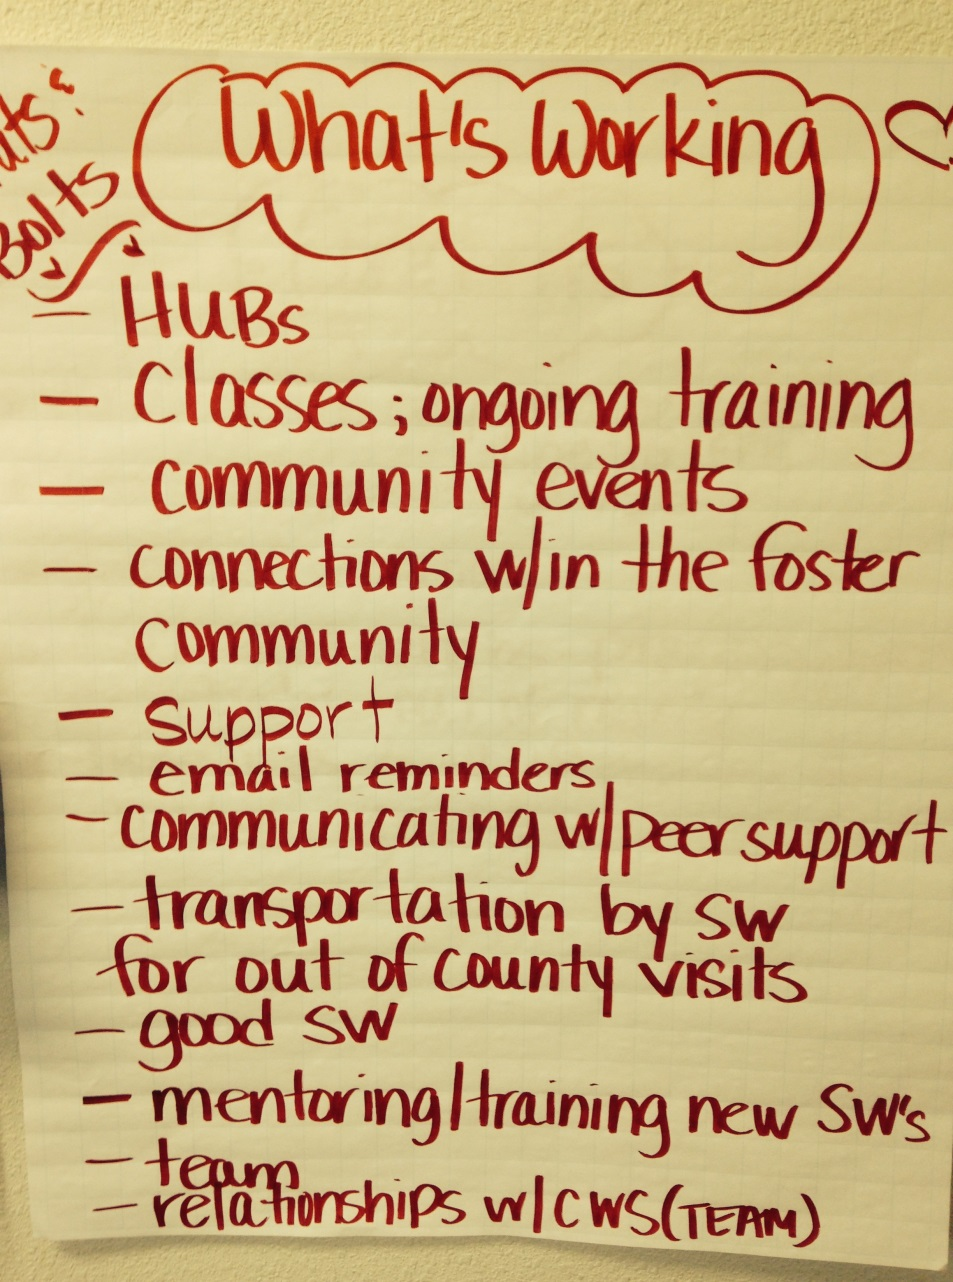 What's Working
Bolts
- HUBs
- Classes; ongoing training
- community events
- connections w/in the foster
community
- support
- email reminders
- communicating w/peer support
- transportation by SW
for out of county visits
- good SW
- mentoring/training new SW's
- team
- relationships w/CWS (TEAM)